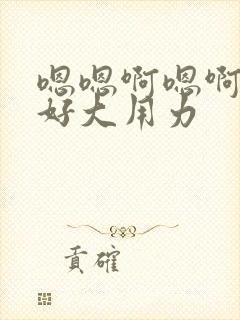 嗯嗯啊嗯啊
好大用力
貢確